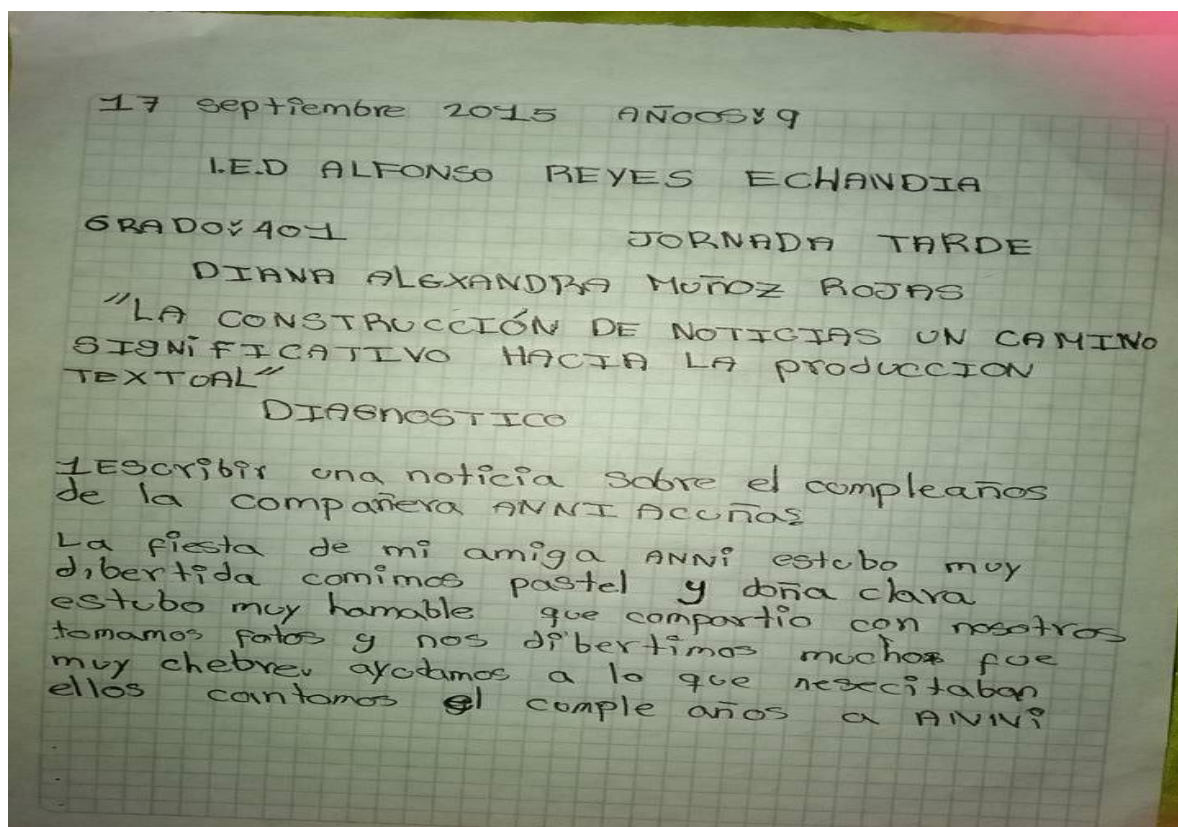 17 septiembre 2015 AÑOOS: 9
I.E.D ALFONSO REYES ECHANDIA
GRADO: 401 JORNADA TARDE
DIANA ALEXANDRA MUÑOZ ROJAS
"LA CONSTRUCCIÓN DE NOTICIAS UN CAMINO
SIGNiFICATIVO HACIA LA producCION
TEXTUAL"
DIAGNOSTICO
1EScribir una noticia sobre el compleaños
de la compañera ANNI Acuñas
La fiesta de mi amiga ANNi estubo muy
dibertida comimos pastel y doña clara
estubo muy hamable que compartio con nosotros
tomamos fotos y nos dibertimos mucho fue
muy chebre. ayudamos a lo que nesecitaban
ellos cantamos el cumple años a ANNi